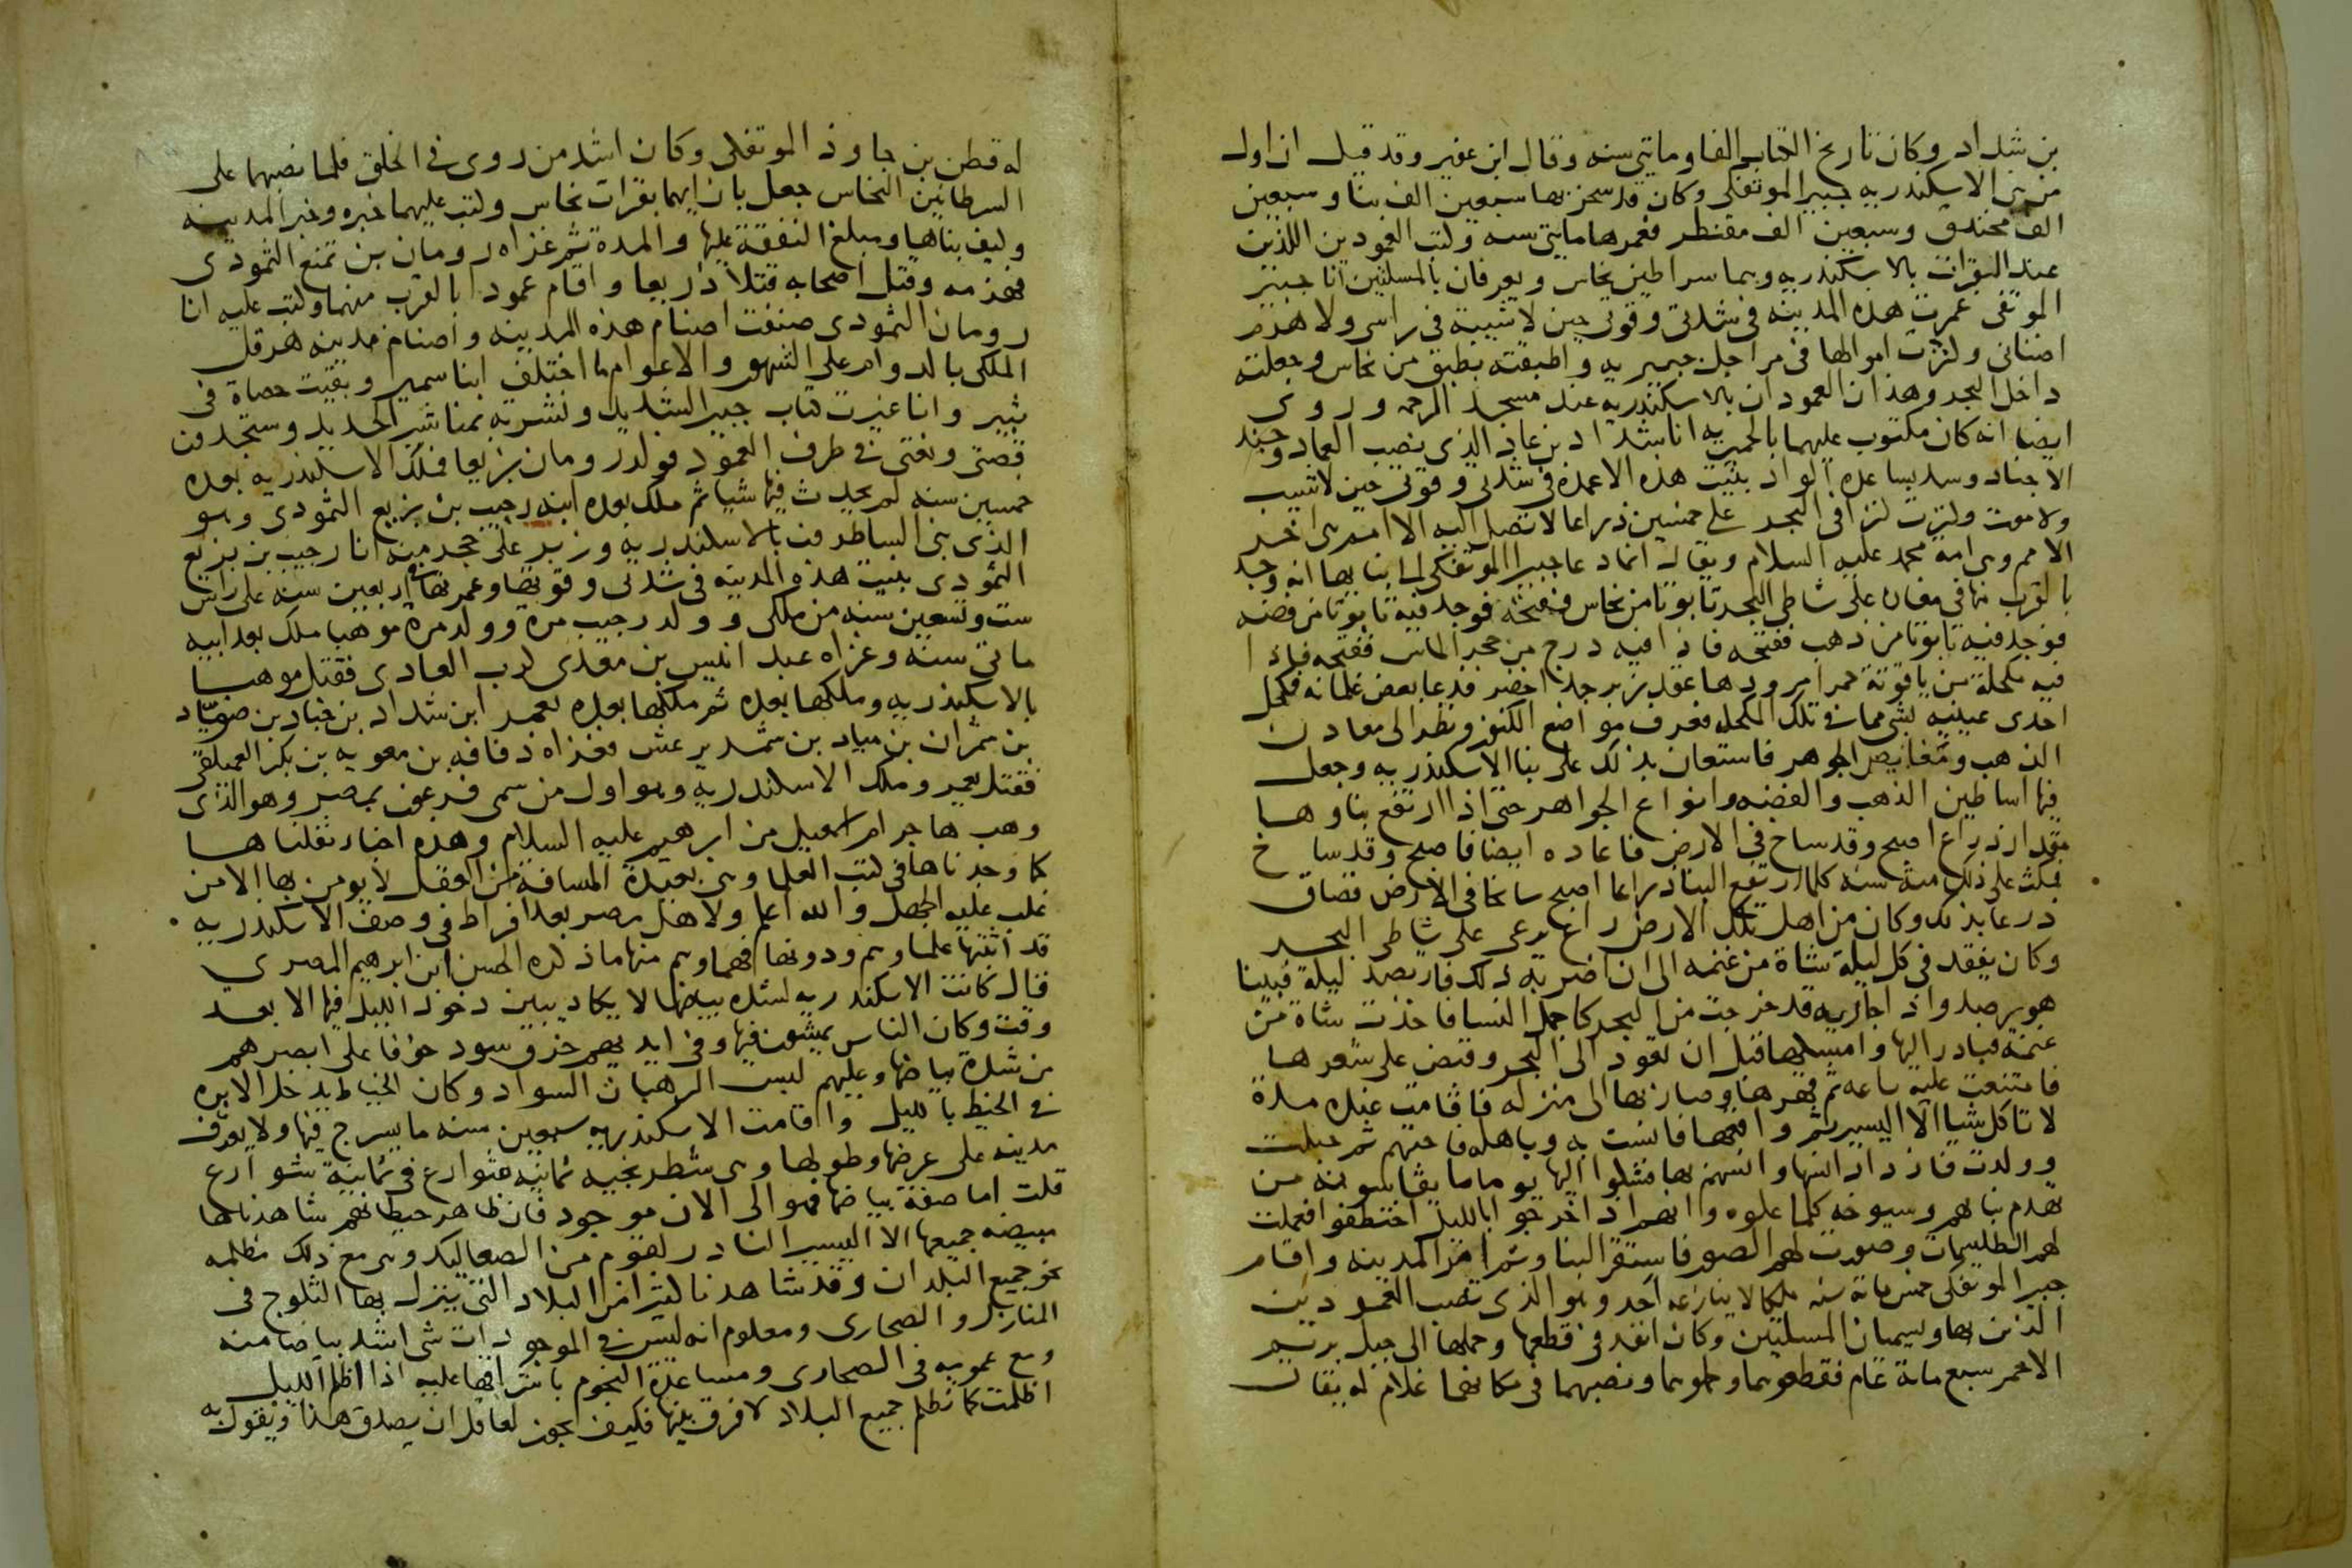 بن شداد وكان تاريخ الكتاب الفا وماتي سنه وقال ابن عفير وقد قيل ان اول
من بنى الاسكندريه جبير الموتفكي وكان قد سخر بها سبعين الف بنا وسبعين
الف مخندق وسبعين الف مقنطر فعمرها مايتي سنه وكتب العمودين اللذين
عند البقرات بالاسكندريه وهما سراطين نحاس ويعرفان بالمسلتين انا جبير
الموتفى عمرت هذه المدينه في شدتي وقوتي حين لا شيبة في راسي ولا هرم
اضناني وكنزت اموالها في مراجل جبيريه واطبقته بطبق من نحاس وجعلته
داخل البحر وهذان العمودان بالاسكندريه عند مسجد الرحمه وروى
ايضا انه كان مكتوب عليهما بالحميريه انا شداد بن عاد الذي نصب العماد وجند
الاجناد وسد بساعده الواد بنيت هذه الاعمدة في شدتي وقوتي حين لا شيب
ولا موت وكنزت كنزا في البحر على خمسين ذراعا لا تصل اليه الا امه هى اخر
الامم وهى امة محمد عليه السلام ويقال انما دعا جبير الموتفكي لما بنا بها انه وجد
بالقرب منها في مغار على شاطى البحر تابوتا من نحاس ففتحه فوجد فيه تابوتا من فضه
فوجد فيه تابوتا من ذهب ففتحه فاذا فيه درج من حجر الماس ففتحه فاذا
فيه مكحلة من ياقوتة حمرا مرودها عود زبرجد اخضر فدعا بعض غلمانه فكحل
احدى عينيه بشي مما في تلك المكحله فعرف مواضع الكنوز ونظر الى معادن
الذهب ومغايص الجوهر فاستعان بذلك على بنا الاسكندريه وجعل
فيها اساطين الذهب والفضه وانواع الجواهر حتى اذا ارتفع بناوها
مقدار ذراع اصبح وقد ساخ في الارض فاعاده ايضا فاصبح وقد ساخ
فمكث على ذلك مئة سنه كلما ارتفع البنا ذراعا اصبح سائخا في الارض فضاق
ذرعا بذلك وكان من اهل تلك الارض راع يرعى على شاطى البحر
وكان يفقد في كل ليلة شاة من غنمه الى ان اضر به ذلك فارتصد ليلة فبينا
هو يرصد واذا بجاريه قد خرجت من البحر كاجمل النسا فاخذت شاة من
غنمه فبادر اليها وامسكها قبل ان تعود الى البحر وقبض على شعرها
فامتنعت عليه ساعه ثم قهرها وصار بها الى منزله فاقامت عنده مدة
لا تاكل شيا الا اليسير ثم واقعها فانست به وباهله فاحبتهم ثم حبلت
وولدت فازداد انسها وانسهم بها فشكوا اليها يوما ما يقاسونه من
تهدم بناهم وسيوخه كلما علوه وانهم اذا خرجوا بالليل اختطفوا فعملت
لهم الطلسمات وصورت لهم الصور فاستقر البنا وتم امر المدينه واقام
جبير الموتفكى خمس مائة سنه ملكا لا ينازعه احد وهو الذي نصب العمودين
الذين بها ويسميان المسلتين وكان انفذ في قطعها وحملها الى جبل بريم
الاحمر سبع مائة عام فقطعوهما وحملوهما ونصبهما في مكانهما غلام له يقال
له قطن بن جاوذ الموتفكى وكان اشد من روى في الخلق فلما نصبهما على
السرطانين النحاس جعل بازايهما بقرات نحاس وكتب عليهما خبره وخبر المدينه
وكيف بناها ومبلغ النفقة عليها والمدة ثم غزاه رومان بن تمنع الثمودى
فهزمه وقتل اصحابه قتلا ذريعا واقام عمودا بالقرب منهما وكتب عليه انا
رومان الثمودى صنفت اصنام هذه المدينه واصنام مدينه هرقل
الملكى بالدوام على الشهور والاعوام ما اختلف ابنا سمير وبقيت حصاة في
ثبير وانا غيرت كتاب جبير الشديد ونشرته بمناشير الحديد وستجدون
قصتي ونعتي في طرف العمود فولد رومان بزيعا فملك الاسكندريه بعده
خمسين سنه لم يحدث فيها شيا ثم ملك بعده ابنه رجيب بن بزيع الثمودى وهو
الذي بنى الساطرون بالاسكندريه وزبر على حجر منه انا رجيب بن بزيع
الثمودى بنيت هذه المدينه في شدتى وقوتها وعمرتها اربعين سنه على راس
ست وتسعين سنه من ملكى وولد رجيب مرة وولد مرة موهبا ملك بعد ابيه
ماتي سنه وغزاه عبد انيس بن معدى كرب العادى فقتل موهبا
بالاسكندريه وملكها بعده ثم ملكها بعده يعمر ابن شداد بن جناد بن صياد
بن شمران بن مياد بن شمر يرعش فغزاه ذفافه بن معويه بن بكر العمليقى
فقتل يعمر وملك الاسكندريه وهو اول من سمى فرعون بمصر وهو الذى
وهب هاجر ام اسمعيل من ابرهيم عليه السلام وهذه اخبار نقلناها
كما وجدناها في كتب العلما وهى بعيدة المسافة من العقل لا يومن بها الا من
غلب عليه الجهل والله اعلم ولاهل مصر بعد افراط في وصف الاسكندريه
قد اثبتها علماوهم ودونها فهماوهم منها ما ذكره الحسن ابن ابرهيم المصرى
قال كانت الاسكندريه لشده بياضها لا يكاد يبين دخول الليل فيها الا بعد
وقت وكان الناس يمشون فيها وفي ايديهم خرق سود خوفا على ابصرهم
من شدة بياضها وعليهم لبس الرهبان السواد وكان الخياط يدخل الابره
في الخيط بالليل واقامت الاسكندريه سبعين سنه ما يسرج فيها ولا يعرف
مدينه على عرضها وطولها وهى شطرنجيه ثمانيه شوارع في ثمانية شوارع
قلت اما صفة بياضها فهو الى الان موجود فان ظاهر حيطانهم شاهدناها
مبيضه جميعها الا اليسير النادر لقوم من الصعاليك وهى مع ذلك مظلمه
نحو جميع البلدان وقد شاهدنا كثيرا من البلاد التى ينزل بها الثلوج فى
المنازل والصحارى ومعلوم انه ليس في الموجودات شى اشد بياضا منه
ومع عمومه فى الصحارى ومساعدة النجوم باشراقها عليه اذا اظلم الليل
اظلمت كما تظلم جميع البلاد لا فرق بينها فكيف يجوز لعاقل ان يصدق هذا ويقول به